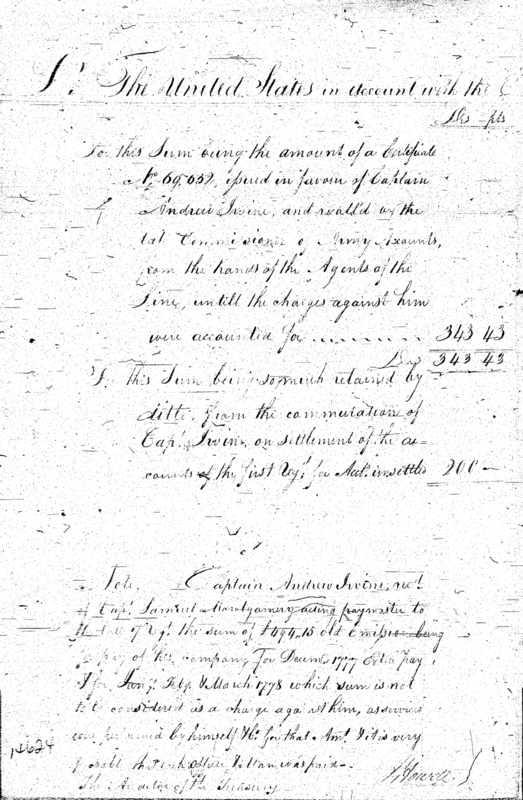 Dr. The United States in account with the
Drs pts
To this Sum being the amount of a Certificate
No. 69.652, issued in favour of Captain
Andrew Irvine, and recall'd by the
lat Commissioner of Army Accounts,
from the hands of the Agents of the
Line, untill the charges against him
were accounted for 343 43
Drs 343 43
To this Sum being so much retained by
ditto from the commutation of
Capt. Irvine, on settlement of the ac-
counts of the first Regt. for unsettled 200 -
Note. Captain Andrew Irvine, rect.
of Capt. Samuel Montgomery acting paymaster to
Regt. the sum of £494.15 old emission being
pay of his company for Decemr. 1777 Extra pay
for Jany. Feby. & March 1778 which sum is not
to be considered as a charge against him, as
by himself for that Amt. & it is very
probable that each Officer
The Auditor of the Treasury
J Howell
14624